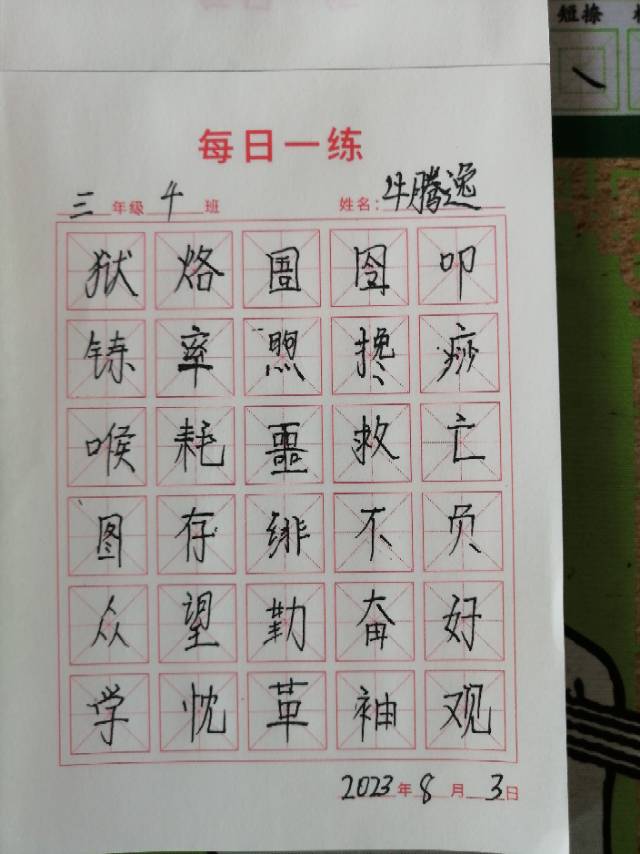 短捺
每日一练
三年级 4班 姓名:牛腾逸
狱烙圄囹叩
铸率煦搀痧
喉耗噩救亡
图存绯不负
众望勤奋好
学忱革袖观
2023年8月3日